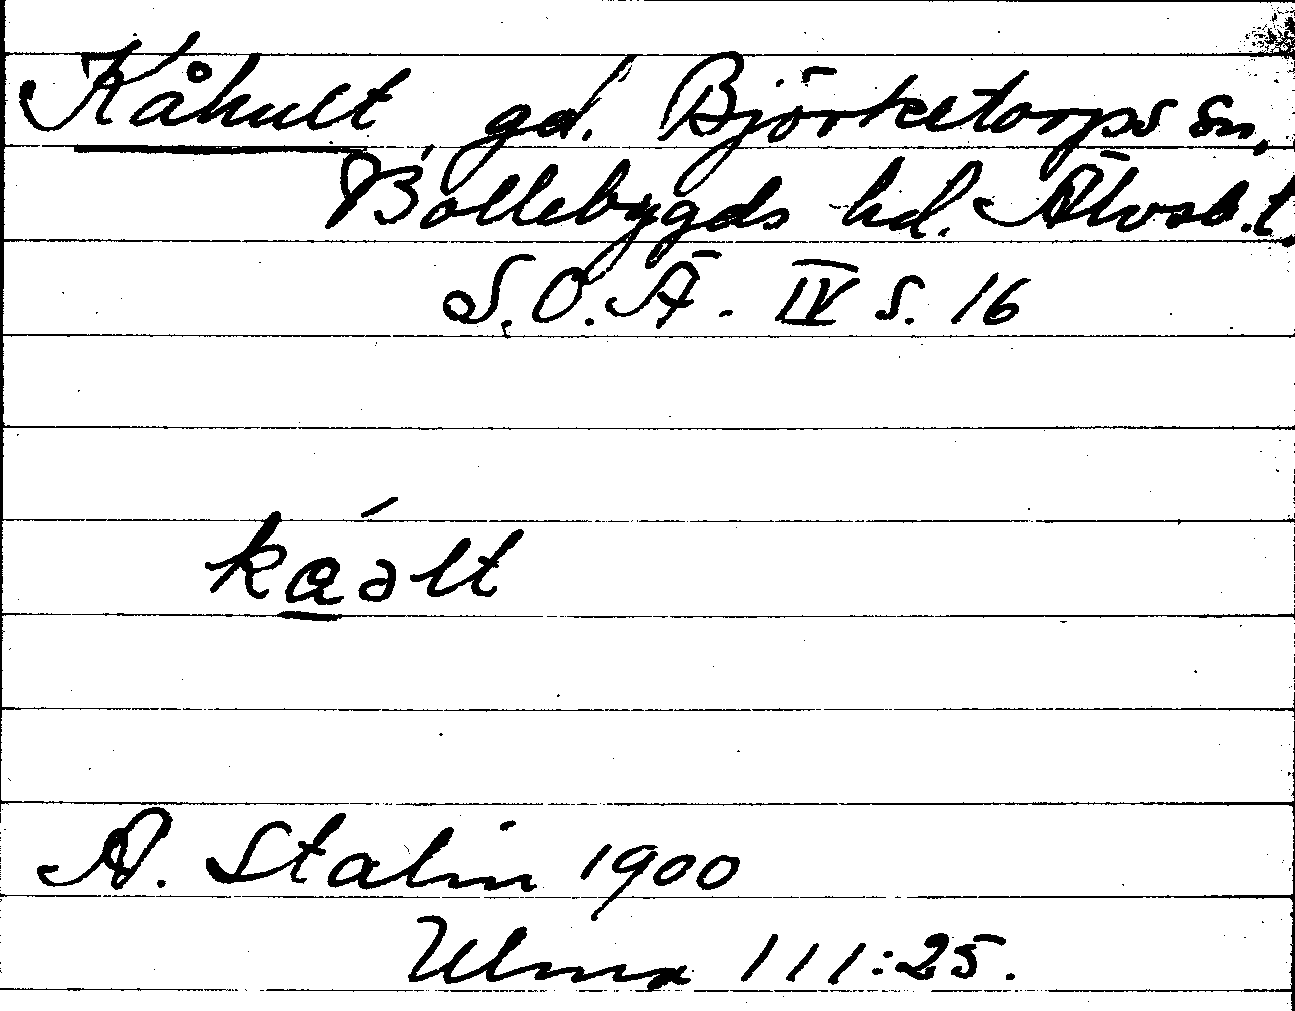 Kåhult, gd. Björketorps sn,
Bollebygds hd. Älvsb.l.
S.O.Ä. IV s. 16
kaəlt
A. Stalin 1900
Ulma 111:25.